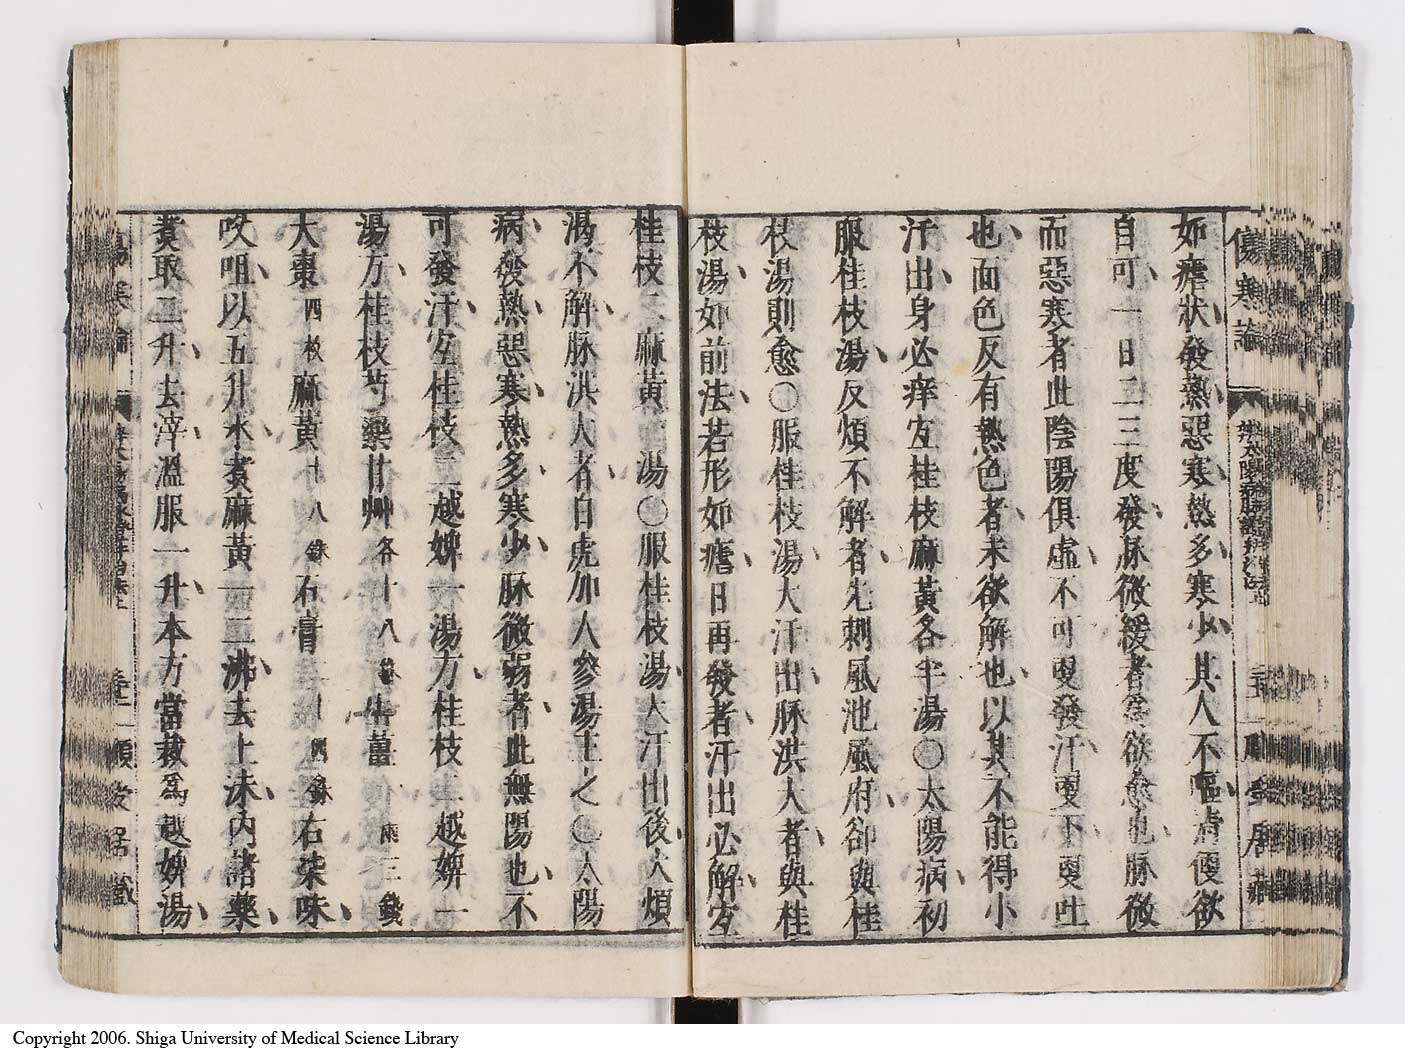 傷寒論
辨太陽病脉證并治法上
如瘧狀發熱惡寒熱多寒少其人不嘔清便欲
自可一日二三度發脉微緩者爲欲愈也脉微
而惡寒者此陰陽俱虛不可更發汗更下更吐
也面色反有熱色者未欲解也以其不能得小
汗出身必痒宜桂枝麻黃各半湯〇太陽病初
服桂枝湯反煩不解者先刺風池風府卻與桂
枝湯則愈〇服桂枝湯大汗出脉洪大者與桂
枝湯如前法若形如瘧日再發者汗出必解宜
桂枝二麻黃一湯〇服桂枝湯大汗出後大煩
渴不解脉洪大者白虎加人參湯主之〇太陽
病發熱惡寒熱多寒少脉微弱者此無陽也不
可發汗宜桂枝二越婢一湯方桂枝二越婢一
湯方桂枝芍藥甘艸各十八銖生薑一兩三錢
大棗四枚麻黃十八銖石膏二十四銖右柒味
㕮咀以五升水煑麻黃一二沸去上沫內諸藥
煑取二升去滓溫服一升本方當裁爲越婢湯
Copyright 2006. Shiga University of Medical Science Library